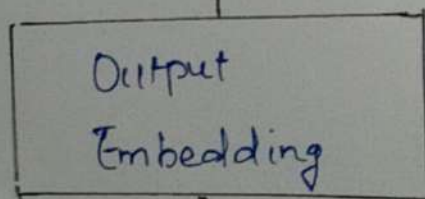 Output
Embedding